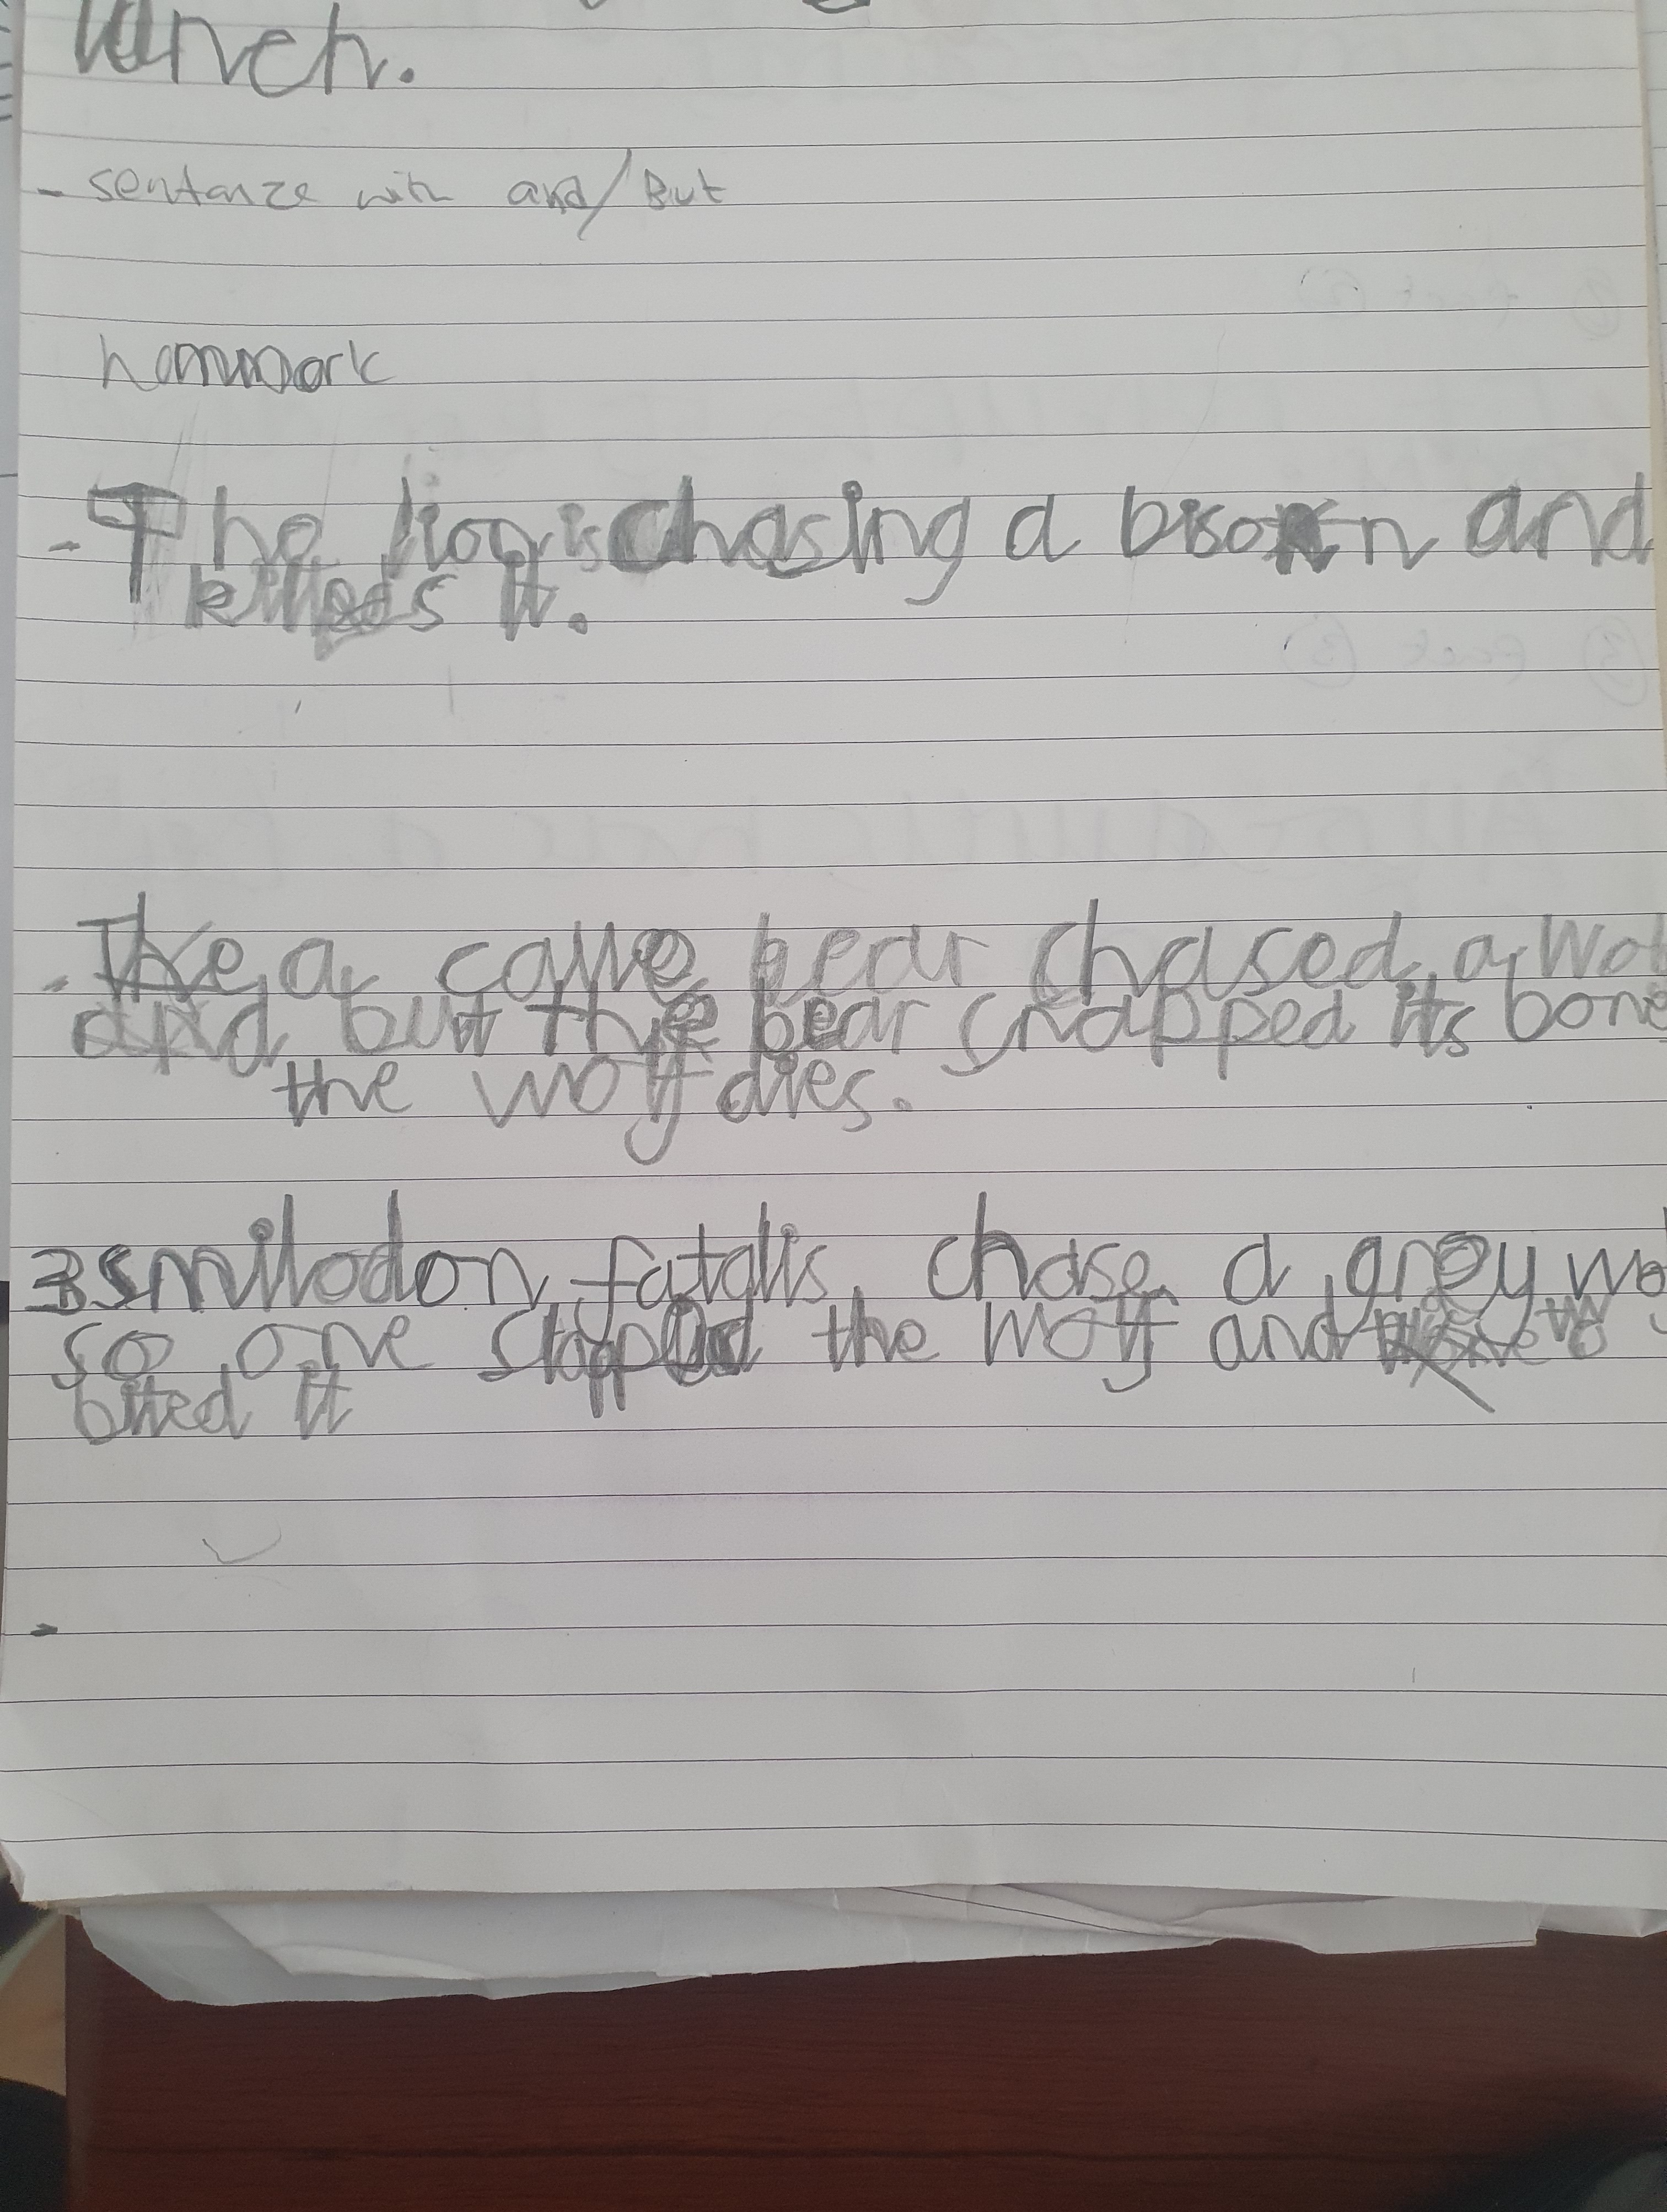 lunch.
- sentanze with and/But
hommork
- The lion is chasing a bison and
killeds it.
- The a cave bear chased a wol
and but the bear snapped its bone
the wolf dies.
3 smilodon fatalis chase a grey wo
so one slapped the wolf and
bited it